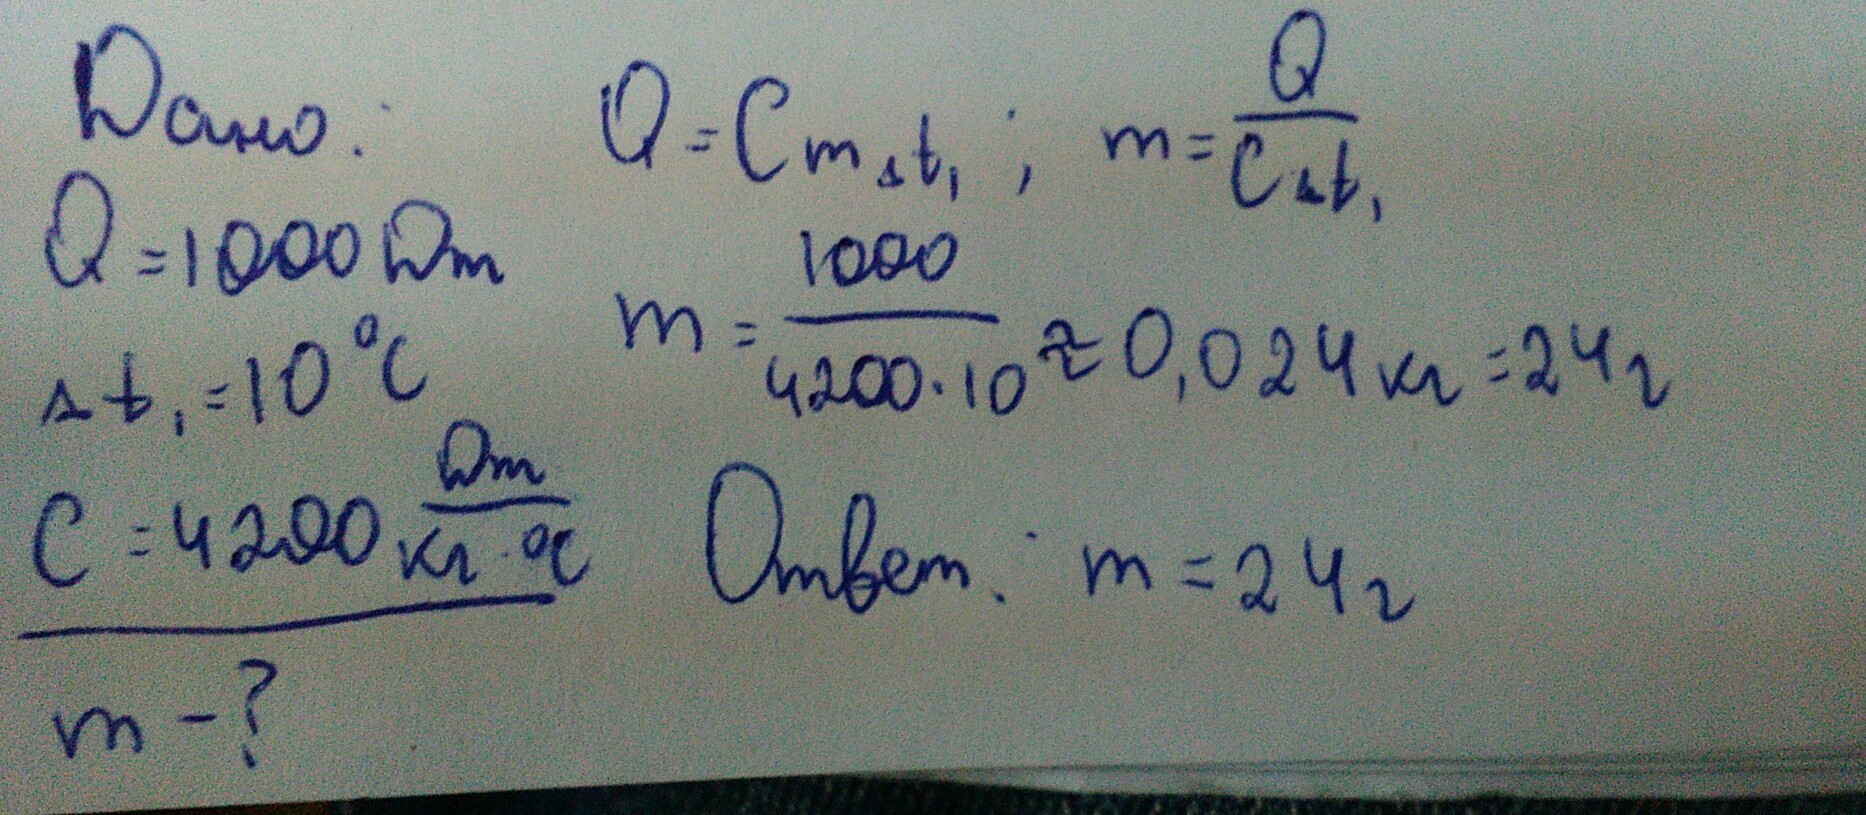 Дано:
Q = 1000 Дж
Δt₁ = 10°C
C = 4200 Дж/кг·°C
m - ?
Q = C m Δt₁ ; m = Q/CΔt₁
m = 1000/4200·10 ≈ 0,024 кг = 24 г
Ответ: m = 24 г